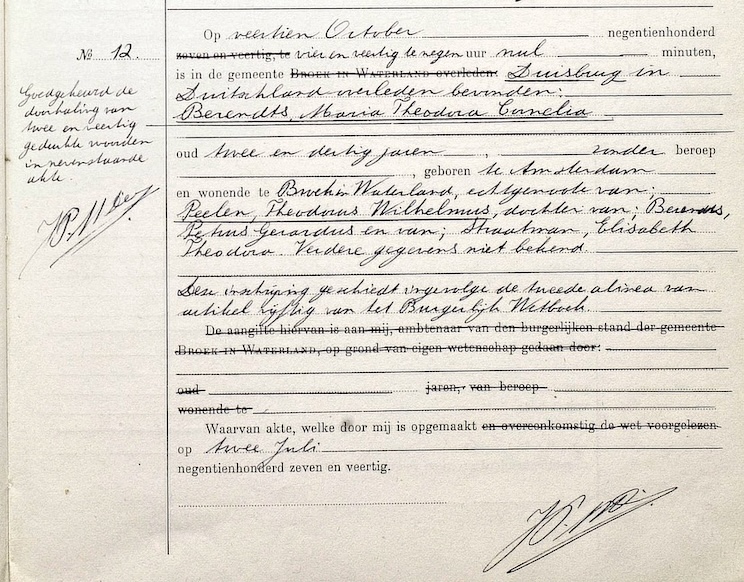 Nº 12.
Goedgekeurd de
doorhaling van
twee en veertig
gedrukte woorden
in nevenstaande
akte
Op veertien October negentienhonderd
zeven en veertig, te vier en veertig te negen uur nul minuten,
is in de gemeente Broek in Waterland overleden: Duisburg in
Duitschland overleden bevonden:
Berendts, Maria Theodora Cornelia
oud twee en dertig jaren, zonder beroep
, geboren te Amsterdam
en wonende te Broek in Waterland, echtgenoote van:
Peelen, Theodorus Wilhelmus, dochter van; Berendts,
Petrus Gerardus en van; Straatman, Elisabeth
Theodora. Verdere gegevens niet bekend.
Deze inschrijving geschiedt ingevolge de tweede alinea van
artikel vijftig van het Burgerlijk Wetboek.
De aangifte hiervan is aan mij, ambtenaar van den burgerlijken stand der gemeente
Broek in Waterland, op grond van eigen wetenschap gedaan door:
oud jaren, van beroep
wonende te
Waarvan akte, welke door mij is opgemaakt en overeenkomstig de wet voorgelezen
op twee Juli
negentienhonderd zeven en veertig.